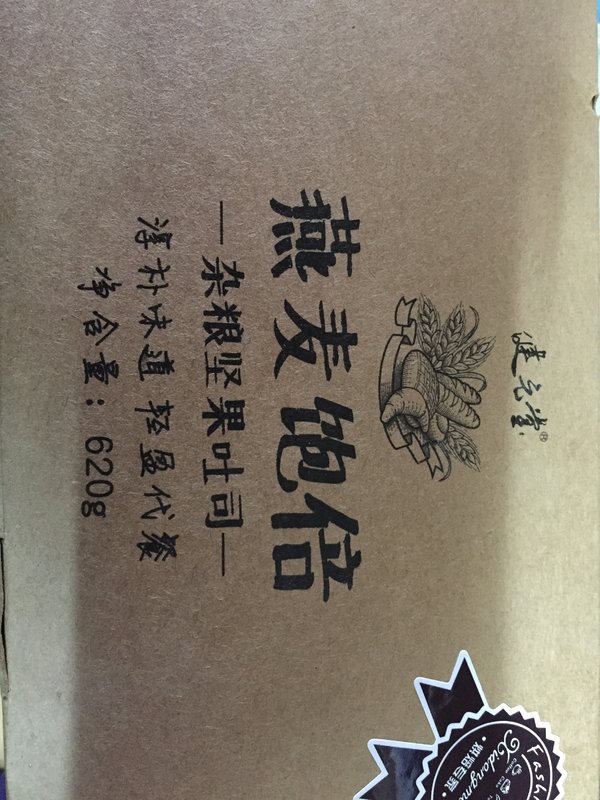 健元堂®
燕麦饱倍
—杂粮坚果吐司—
淳朴味道 轻盈代餐
净含量：620g
Fash
Xidongmu
·烘焙专家·